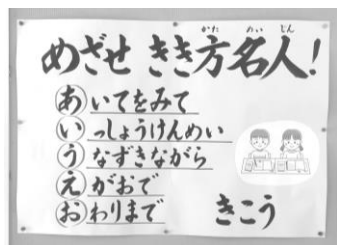 めざせ きき方名人!
かた めい じん
あいてをみて
いっしょうけんめい
うなずきながら
えがおで
おわりまで
きこう